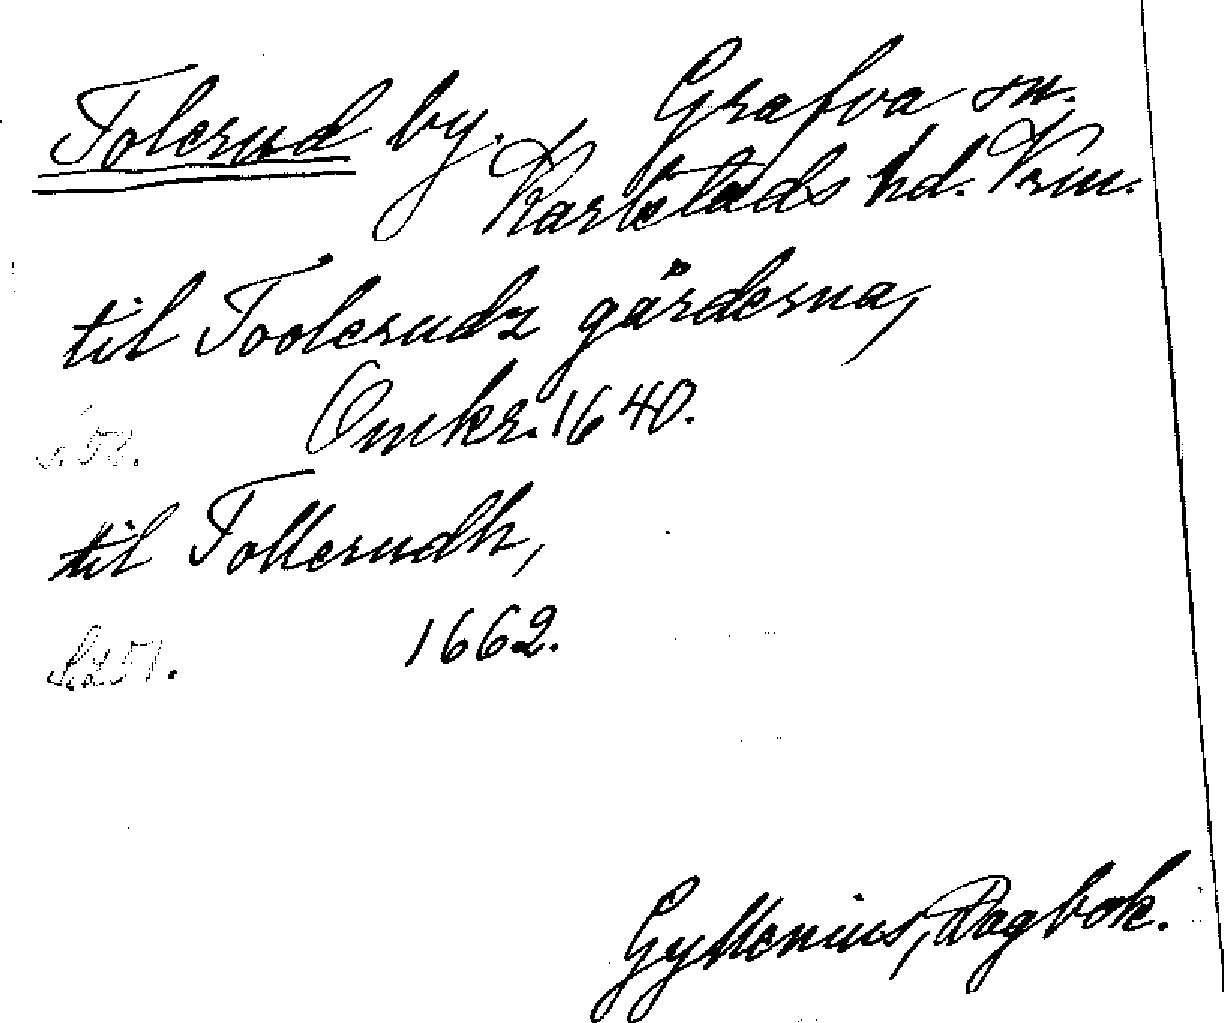 Tolerud by. Grafva sn.
Karlstads hd. Vrm.
til Toolerudz gärderna,
Omkr. 1640.
til Tollerudh,
1662.
Gyllenius, Dagbok.